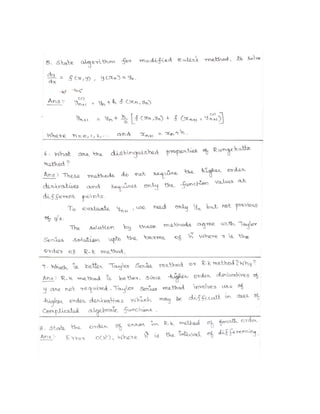 5. State algorithm for modified Euler's method, to solve
dy/dx = f(x, y), y(x₀) = y₀.
at
Ans: y⁽¹⁾ₙ₊₁ = yₙ + h f(xₙ, yₙ)
yₙ₊₁ = yₙ + h/2 [f(xₙ, yₙ) + f(xₙ₊₁, y⁽¹⁾ₙ₊₁)]
where n=0,1,2,... and xₙ₊₁ = xₙ+h.
6. What are the distinguished properties of Runge kutta
method?
Ans: These methods do not require the higher order
derivatives and requires only the function values at
different points.
To evaluate yₙ₊₁, we need only yₙ but not previous
of y's.
The solution by these methods agree with Taylor
Series solution upto the terms of hʳ where r is the
order of R-k method.
7. Which is better Taylor Series method or R.k method? Why?
Ans: R.k method is better, since higher order derivatives of
y are not required. Taylor Series method involves use of
higher order derivatives which may be difficult in case of
Complicated algebraic functions.
8. State the order of error in R.k method of fourth order
Ans: Error O(h⁵), where h is the interval of differencing.